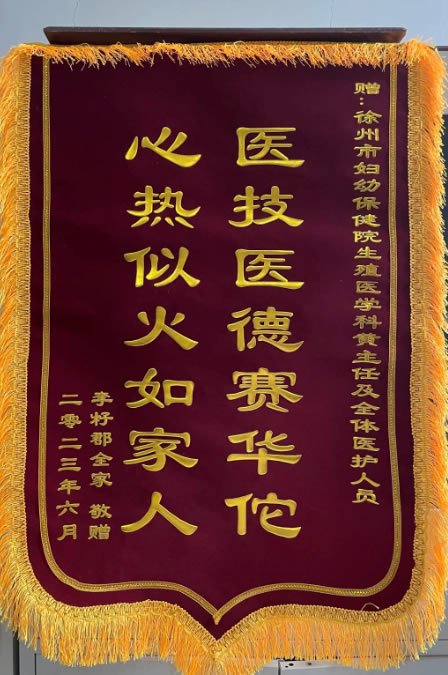 赠：徐州市妇幼保健院生殖医学科黄主任及全体医护人员
医技医德赛华佗
心热似火如家人
李籽郡全家 敬赠
二零二三年六月